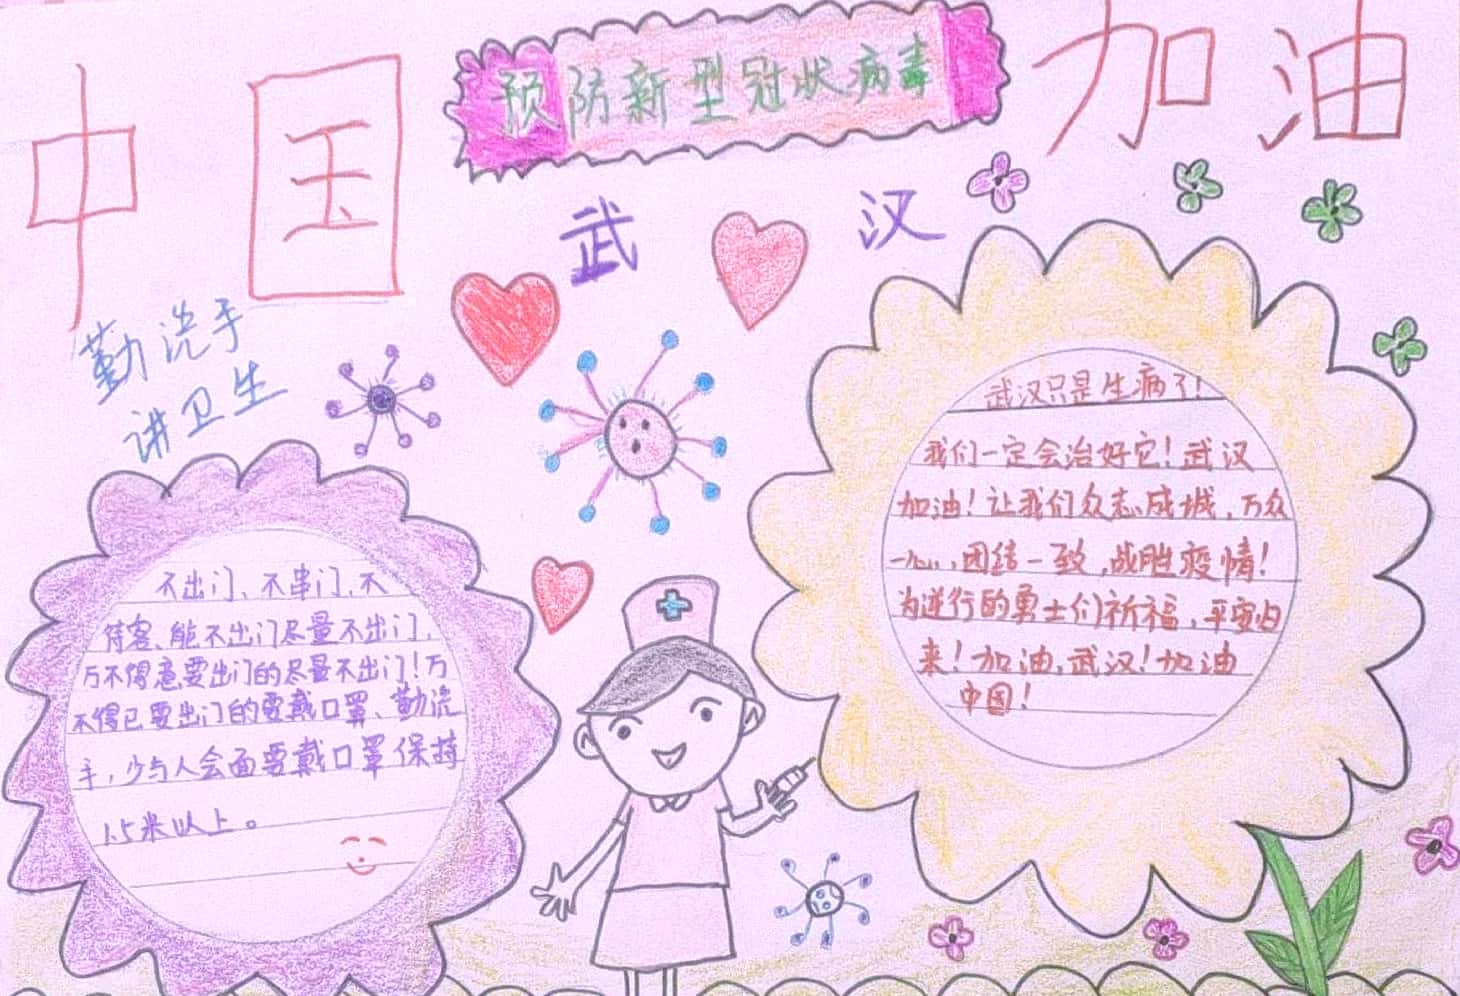 中国
预防新型冠状病毒
加油
武汉
勤洗手
讲卫生
武汉只是生病了!
我们一定会治好它!武汉
加油!让我们众志成城,万众
一心,团结一致,战胜疫情!
为逆行的勇士们祈福,平安归
来!加油,武汉!加油
中国!
不出门、不串门,不
待客、能不出门尽量不出门,
万不得意要出门的尽量不出门!万
不得已要出门的要戴口罩、勤洗
手,少与人会面要戴口罩保持
1.5米以上。